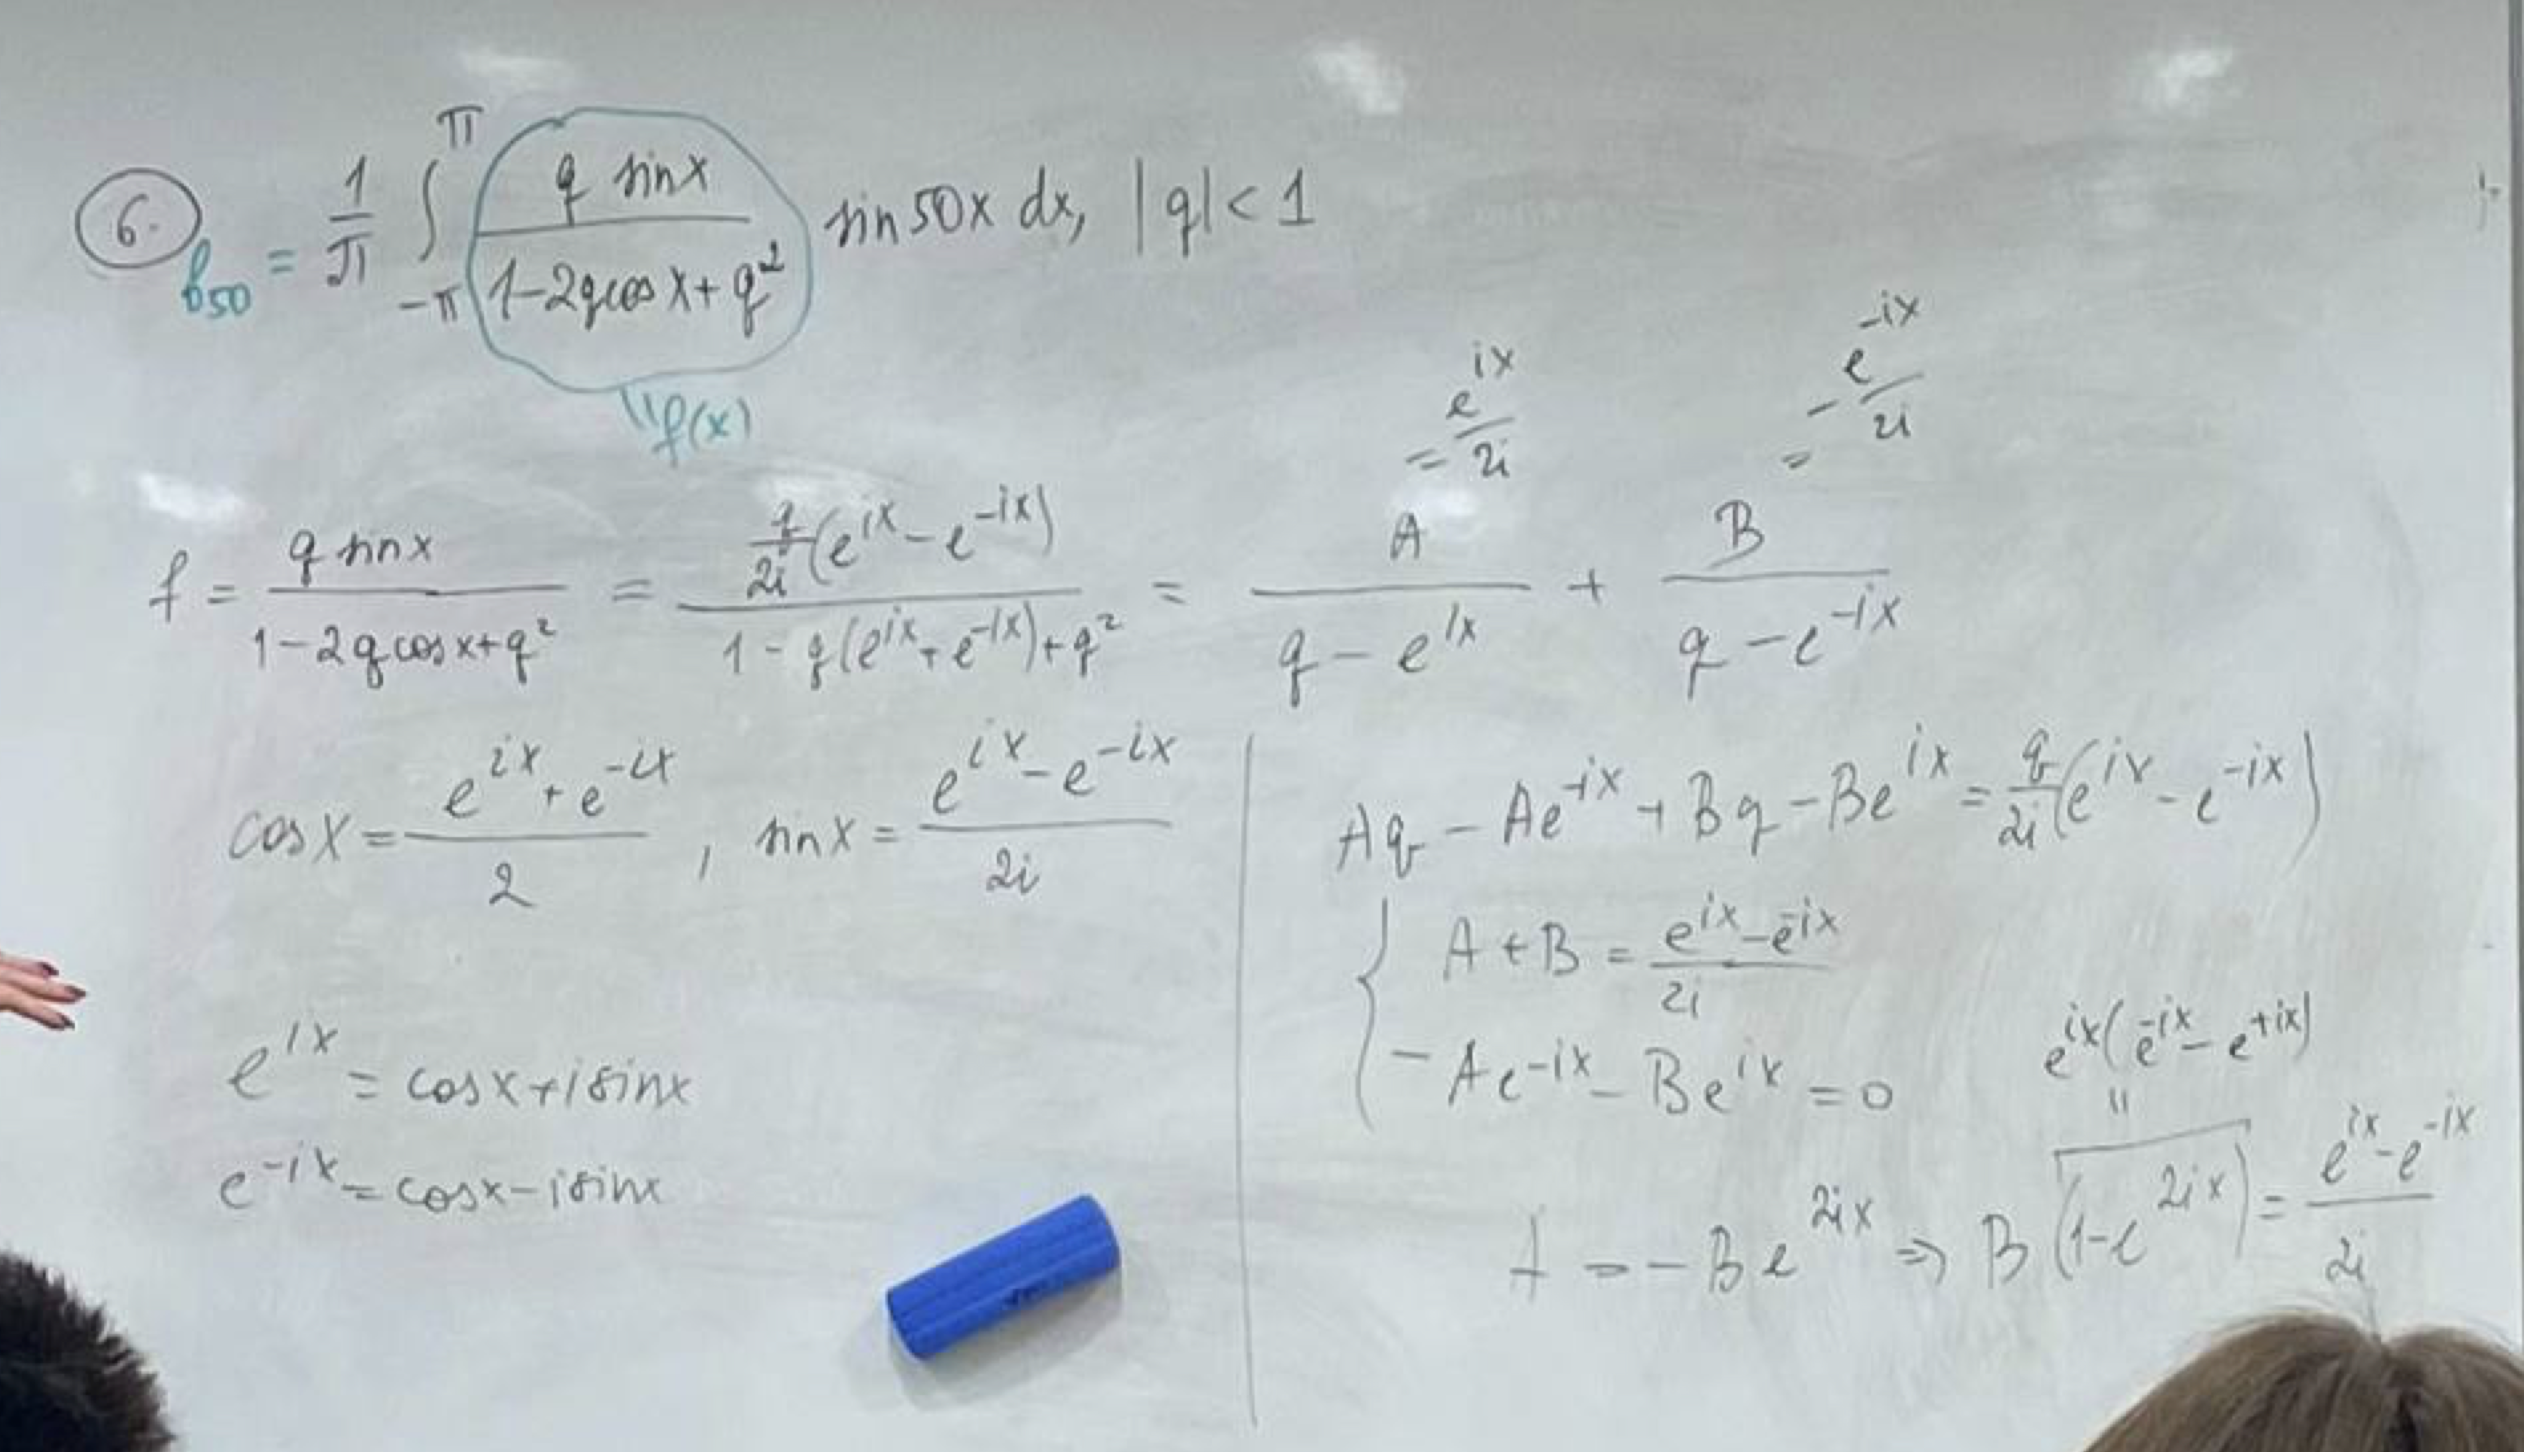 6. b₅₀ = 1/π ∫_{-π}^{π} (q sin x)/(1-2q cos x + q²) sin 50x dx, |q| < 1
" f(x)
= e^{ix}/2i    = -e^{-ix}/2i
f = (q sin x)/(1-2q cos x + q²) = (q/2i (e^{ix} - e^{-ix}))/(1 - q(e^{ix} + e^{-ix}) + q²) = A/(q - e^{ix}) + B/(q - e^{-ix})
cos x = (e^{ix} + e^{-ix})/2 , sin x = (e^{ix} - e^{-ix})/2i
e^{ix} = cos x + i sin x
e^{-ix} = cos x - i sin x
Aq - Ae^{-ix} + Bq - Be^{ix} = q/2i (e^{ix} - e^{-ix})
{ A + B = (e^{ix} - e^{-ix})/2i
- Ae^{-ix} - Be^{ix} = 0
e^{ix}(e^{-ix} - e^{+ix})
"
A = - Be^{2ix} ⇒ B (1 - e^{2ix}) = (e^{ix} - e^{-ix})/2i